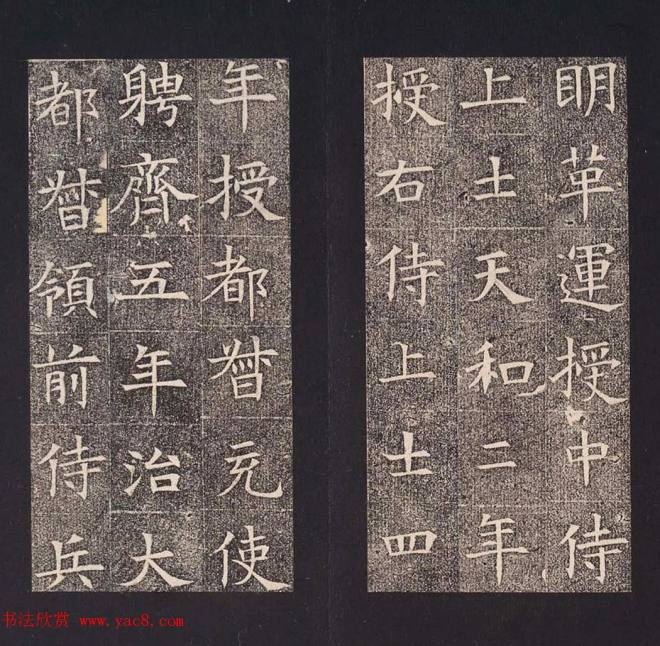 眀革運授中侍
上士天和二年
授右侍上士四
年授都督充使
聘齊五年治大
都督領前侍兵
书法欣赏 www.yac8.com